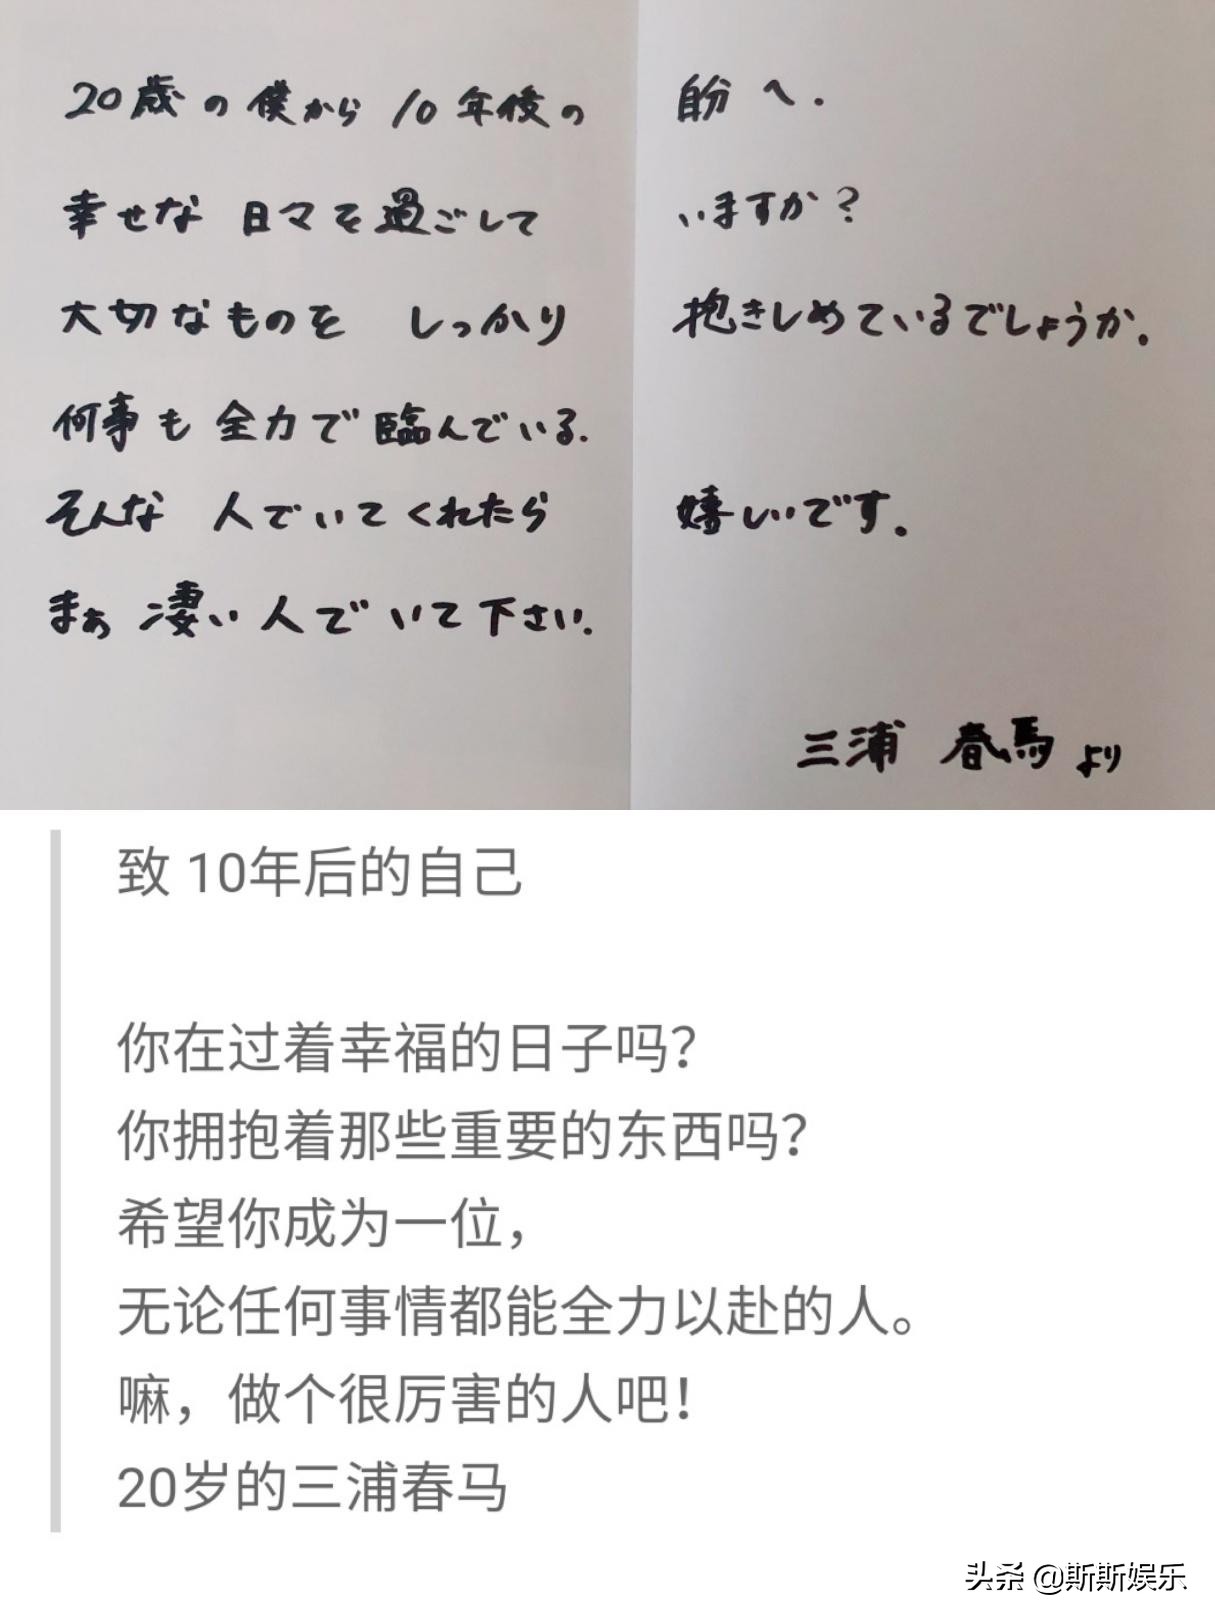 20歳の僕から 10年後の 自分へ.
幸せな 日々を過ごして いますか?
大切なものを しっかり 抱きしめているでしょうか。
何事も 全力で臨んでいる.
そんな 人でいてくれたら 嬉しいです。
まぁ 凄い人でいて下さい.
三浦 春馬より
致 10年后的自己
你在过着幸福的日子吗？
你拥抱着那些重要的东西吗？
希望你成为一位，
无论任何事情都能全力以赴的人。
嘛，做个很厉害的人吧！
20岁的三浦春马
头条 @斯斯娱乐